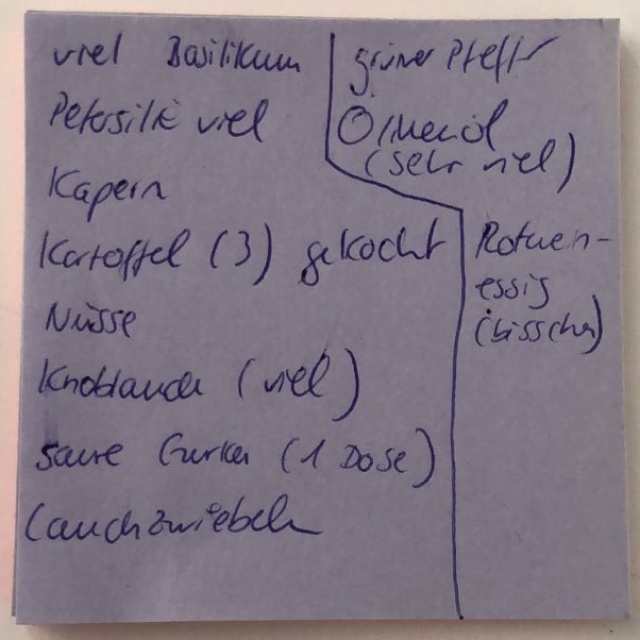 viel Basilikum
Petersilie viel
Kapern
Kartoffel (3) gekocht
Nüsse
Knoblauch (viel)
saure Gurken (1 Dose)
Lauchzwiebeln
grüner Pfeffer
Olivenöl
(sehr viel)
Rotwein-
essig
(bisschen)